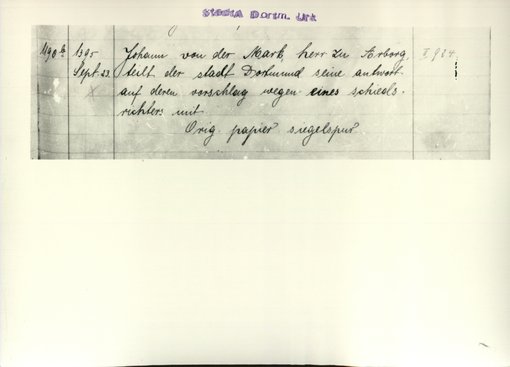 StadtA Dortm. Urk
1190 b 1395 Johann von der Mark, herr zu Arberg, II 924.
Sept. 23. teilt der stadt Dortmund seine antwort
auf deren vorschlag wegen eines schieds-
richters mit.
Orig. papier siegelspur